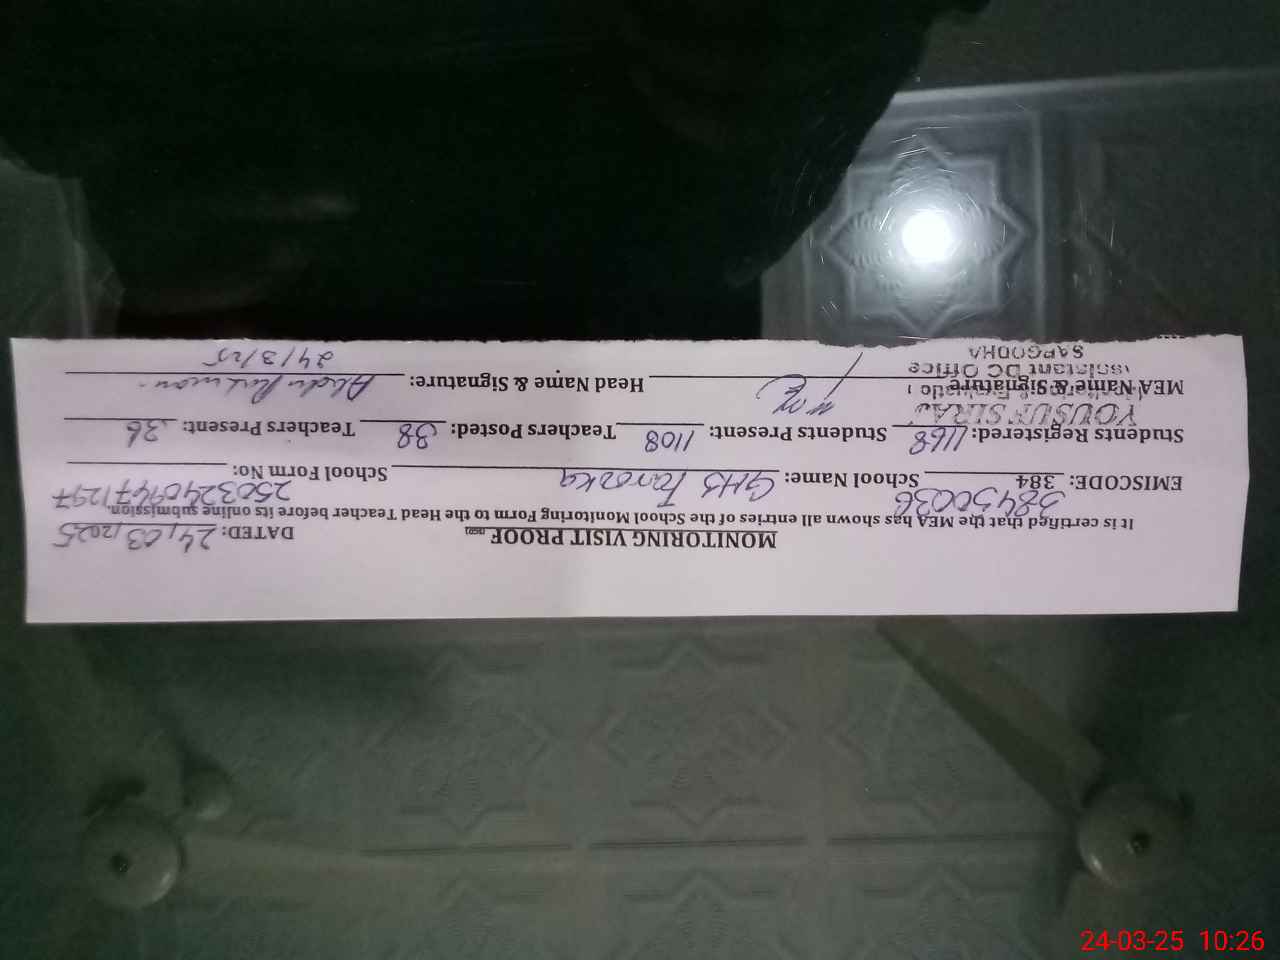 MONITORING VISIT PROOF
DATED: 24/03/2025
It is certified that the MEA has shown all entries of the School Monitoring Form to the Head Teacher before its online submission.
EMISCODE: 384 38430036 School Name: GHS School Form No: 25032409471297
Students Registered: 1168 Students Present: 1108 Teachers Posted: 38 Teachers Present: 36
YOUSUF SIRAJ
MEA Name & Signature Head Name & Signature: Abdu Rehman
Assistant DC Office
SARGODHA
24/3/25
24-03-25 10:26